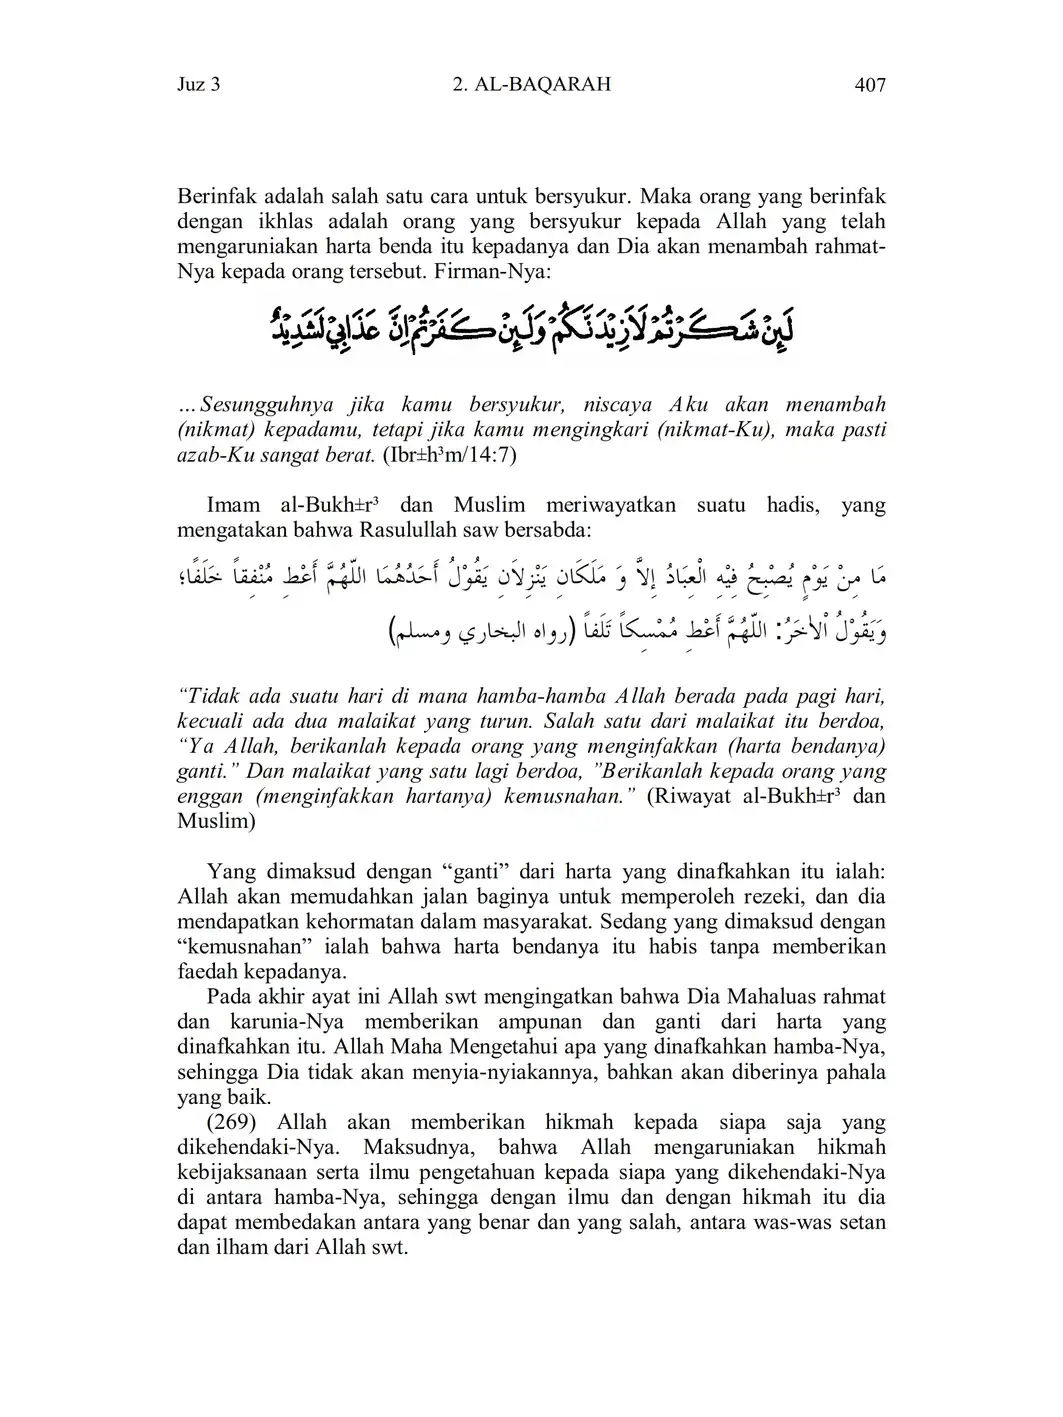 Juz 3 2. AL-BAQARAH 407
Berinfak adalah salah satu cara untuk bersyukur. Maka orang yang berinfak
dengan ikhlas adalah orang yang bersyukur kepada Allah yang telah
mengaruniakan harta benda itu kepadanya dan Dia akan menambah rahmat-
Nya kepada orang tersebut. Firman-Nya:
لَىِٕنْ شَكَرْتُمْ لَاَزِيْدَنَّكُمْ وَلَىِٕنْ كَفَرْتُمْ اِنَّ عَذَابِيْ لَشَدِيْدٌ
…Sesungguhnya jika kamu bersyukur, niscaya Aku akan menambah
(nikmat) kepadamu, tetapi jika kamu mengingkari (nikmat-Ku), maka pasti
azab-Ku sangat berat. (Ibr±h³m/14:7)
Imam al-Bukh±r³ dan Muslim meriwayatkan suatu hadis, yang
mengatakan bahwa Rasulullah saw bersabda:
مَا مِنْ يَوْمٍ يُصْبِحُ فِيْهِ الْعِبَادُ إِلاَّ وَ مَلَكَانِ يَنْزِلاَنِ يَقُوْلُ أَحَدُهُمَا اللّهُمَّ أَعْطِ مُنْفِقاً خَلَفًا؛
وَيَقُوْلُ اْلأخَرُ: اللّهُمَّ أَعْطِ مُمْسِكاً تَلَفاً (رواه البخاري ومسلم)
“Tidak ada suatu hari di mana hamba-hamba Allah berada pada pagi hari,
kecuali ada dua malaikat yang turun. Salah satu dari malaikat itu berdoa,
“Ya Allah, berikanlah kepada orang yang menginfakkan (harta bendanya)
ganti.” Dan malaikat yang satu lagi berdoa, ”Berikanlah kepada orang yang
enggan (menginfakkan hartanya) kemusnahan.” (Riwayat al-Bukh±r³ dan
Muslim)
Yang dimaksud dengan “ganti” dari harta yang dinafkahkan itu ialah:
Allah akan memudahkan jalan baginya untuk memperoleh rezeki, dan dia
mendapatkan kehormatan dalam masyarakat. Sedang yang dimaksud dengan
“kemusnahan” ialah bahwa harta bendanya itu habis tanpa memberikan
faedah kepadanya.
Pada akhir ayat ini Allah swt mengingatkan bahwa Dia Mahaluas rahmat
dan karunia-Nya memberikan ampunan dan ganti dari harta yang
dinafkahkan itu. Allah Maha Mengetahui apa yang dinafkahkan hamba-Nya,
sehingga Dia tidak akan menyia-nyiakannya, bahkan akan diberinya pahala
yang baik.
(269) Allah akan memberikan hikmah kepada siapa saja yang
dikehendaki-Nya. Maksudnya, bahwa Allah mengaruniakan hikmah
kebijaksanaan serta ilmu pengetahuan kepada siapa yang dikehendaki-Nya
di antara hamba-Nya, sehingga dengan ilmu dan dengan hikmah itu dia
dapat membedakan antara yang benar dan yang salah, antara was-was setan
dan ilham dari Allah swt.